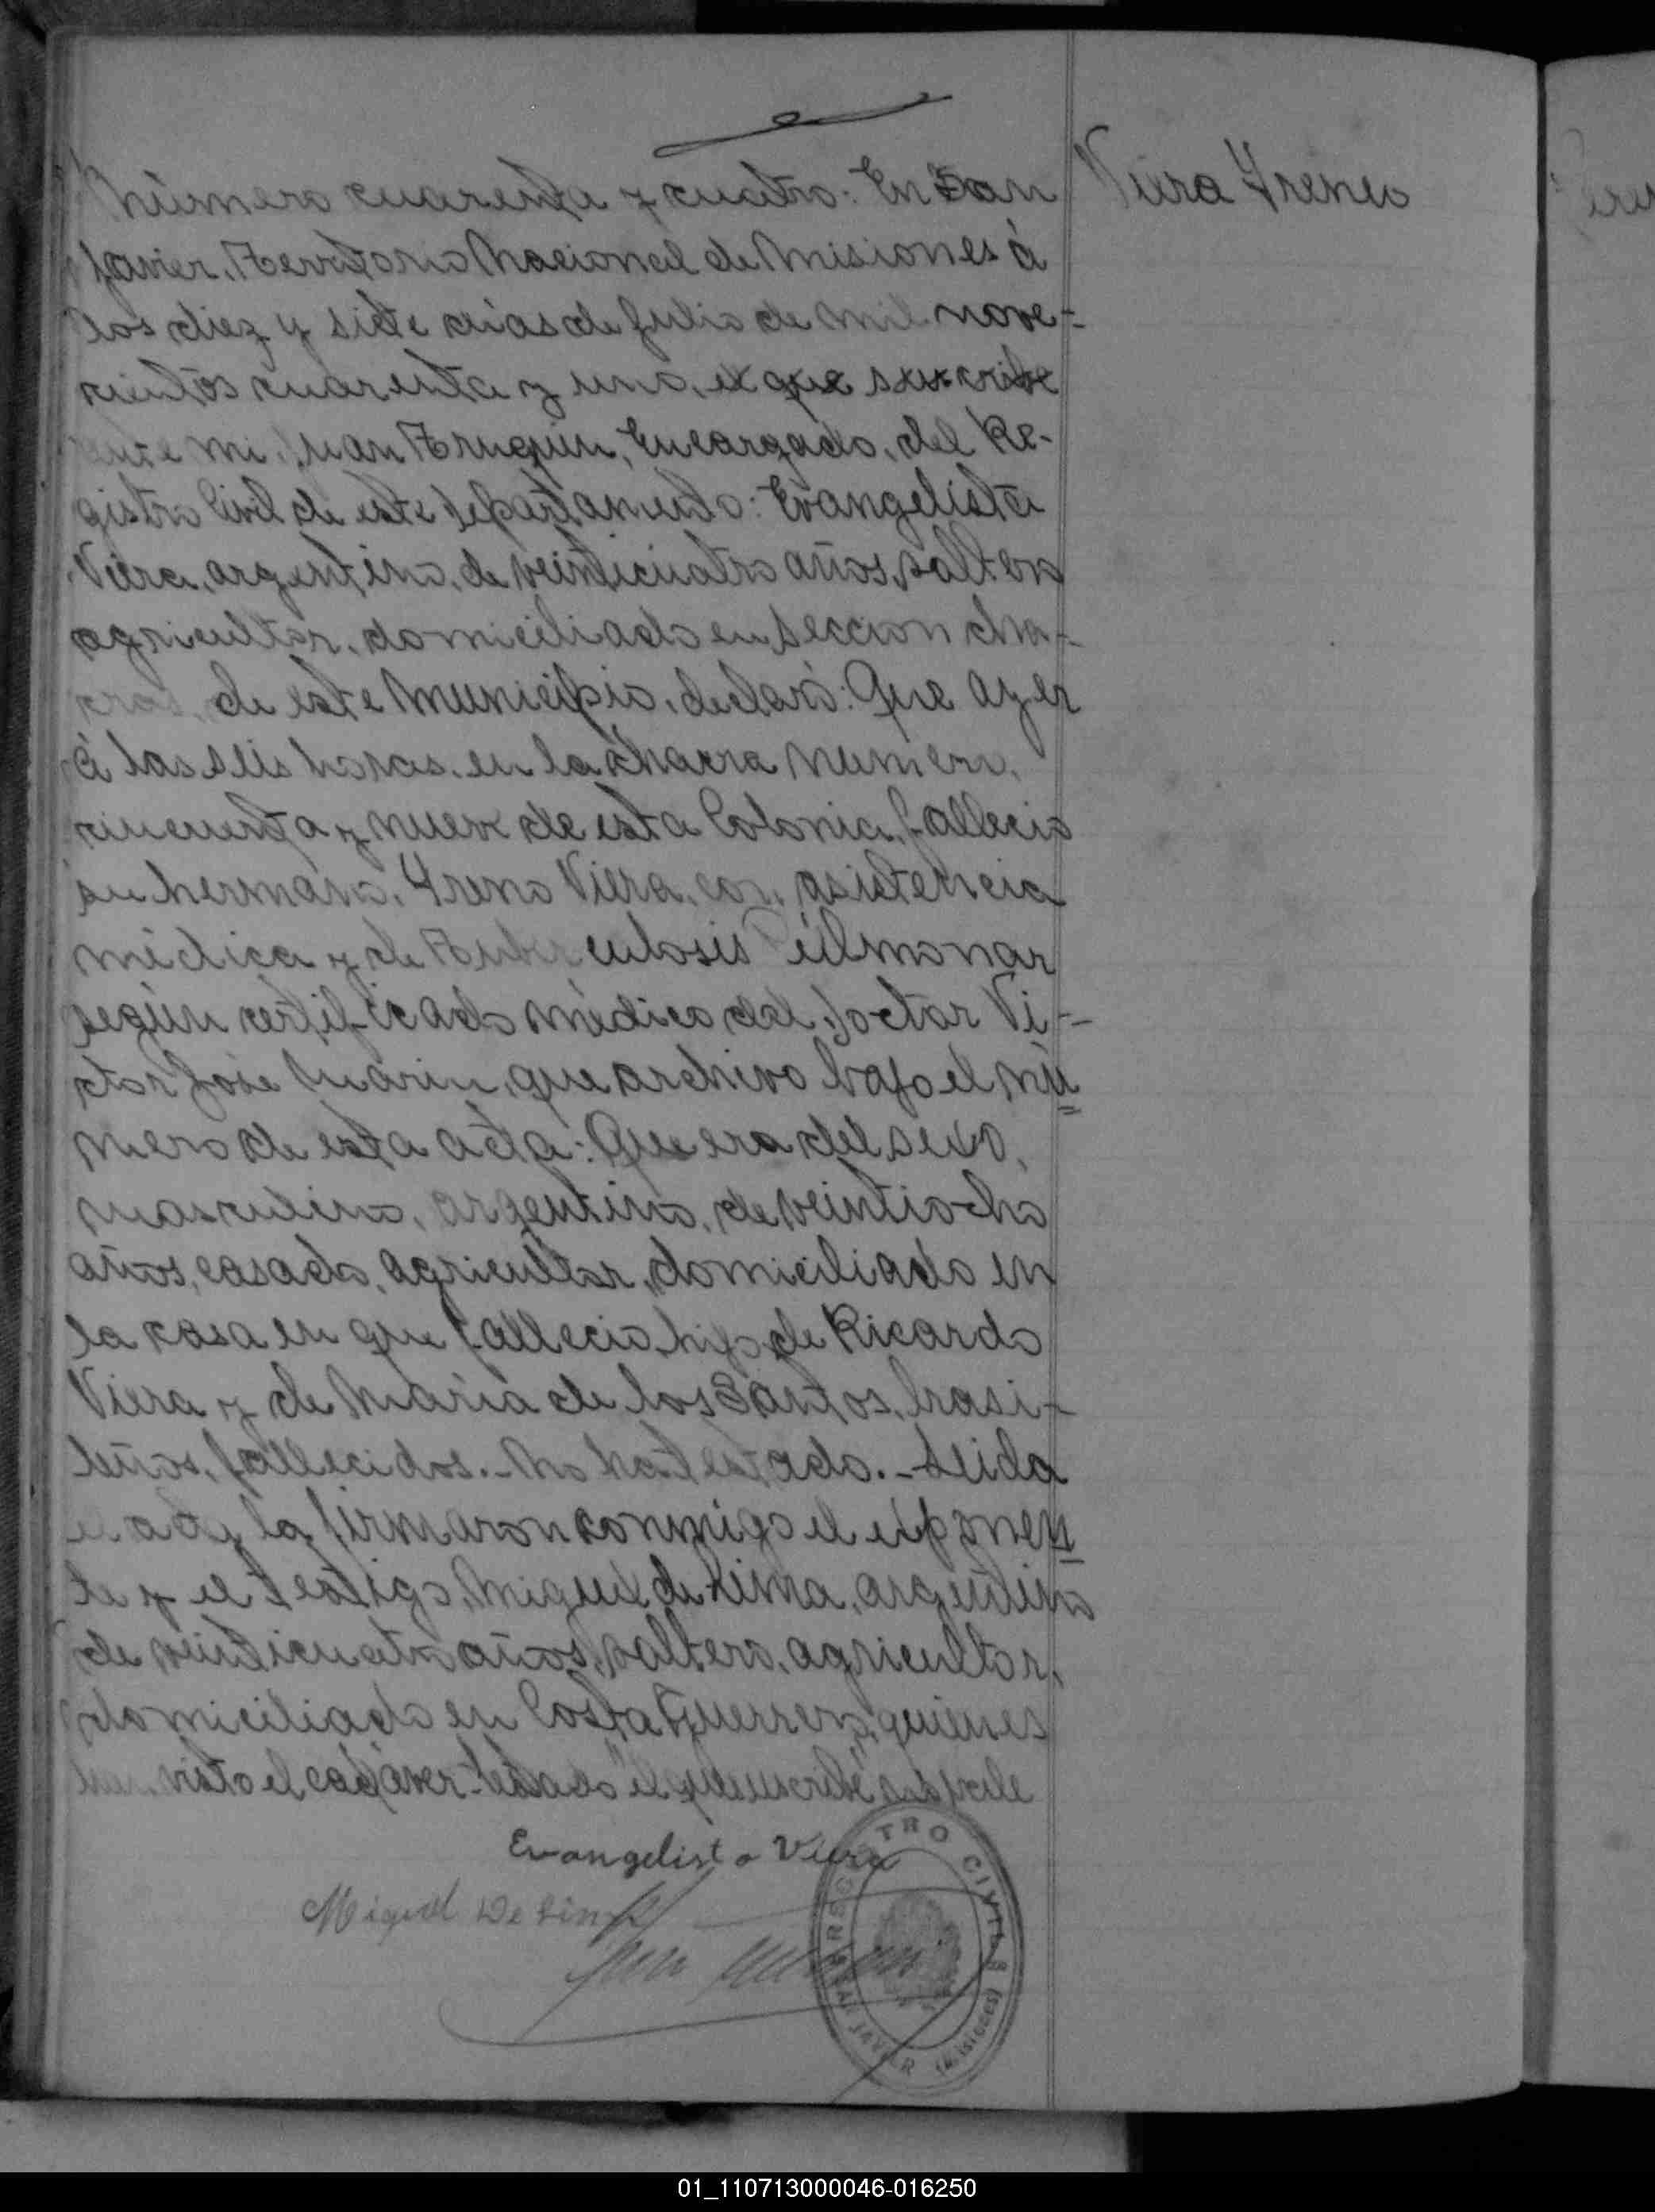 Número cuarenta y cuatro: En San
Javier, Territorio Nacional de Misiones á
los diez y siete dias de Julio de mil nove-
cientos cuarenta y uno, el que suscribe
ante mi, Juan Encargado, del Re-
gistro Civil de este Departamento: Evangelista
Viera, argentino, de veinticuatro años, soltero
agricultor, domiciliado en Seccion cha-
cras, de este Municipio, declaró: Que ayer
á las seis horas, en la chacra numero,
cincuenta y nueve de esta Colonia, fallecio
su hermano, Yreno Viera, con, asistencia
médica y de Tuberculosis Pulmonar
según certificado médico del, Doctor Vi-
ctor José Marin, que archivo bajo el nú
mero de esta acta: Que era del sexo,
masculino, argentino, de veintiocho
años, casado, agricultor, domiciliado en
la casa en que fallecio, hijo de Ricardo
Viera y de Maria de los Santos, brasi-
leños, fallecidos.- No ha testado.- Leida
el acta la firmaron conmigo el exponen
te y el testigo, Miguel de Lima, argentino
de veinticuatro años, soltero, agricultor,
domiciliado en Costa Guerrero, quienes
han visto el cadáver.- Testado "el que suscribe" no vale
Evangelista Viera
Miguel De Lima
REGISTRO CIVIL
SAN JAVIER (Misiones)
Viera Yreneo
01_110713000046-016250